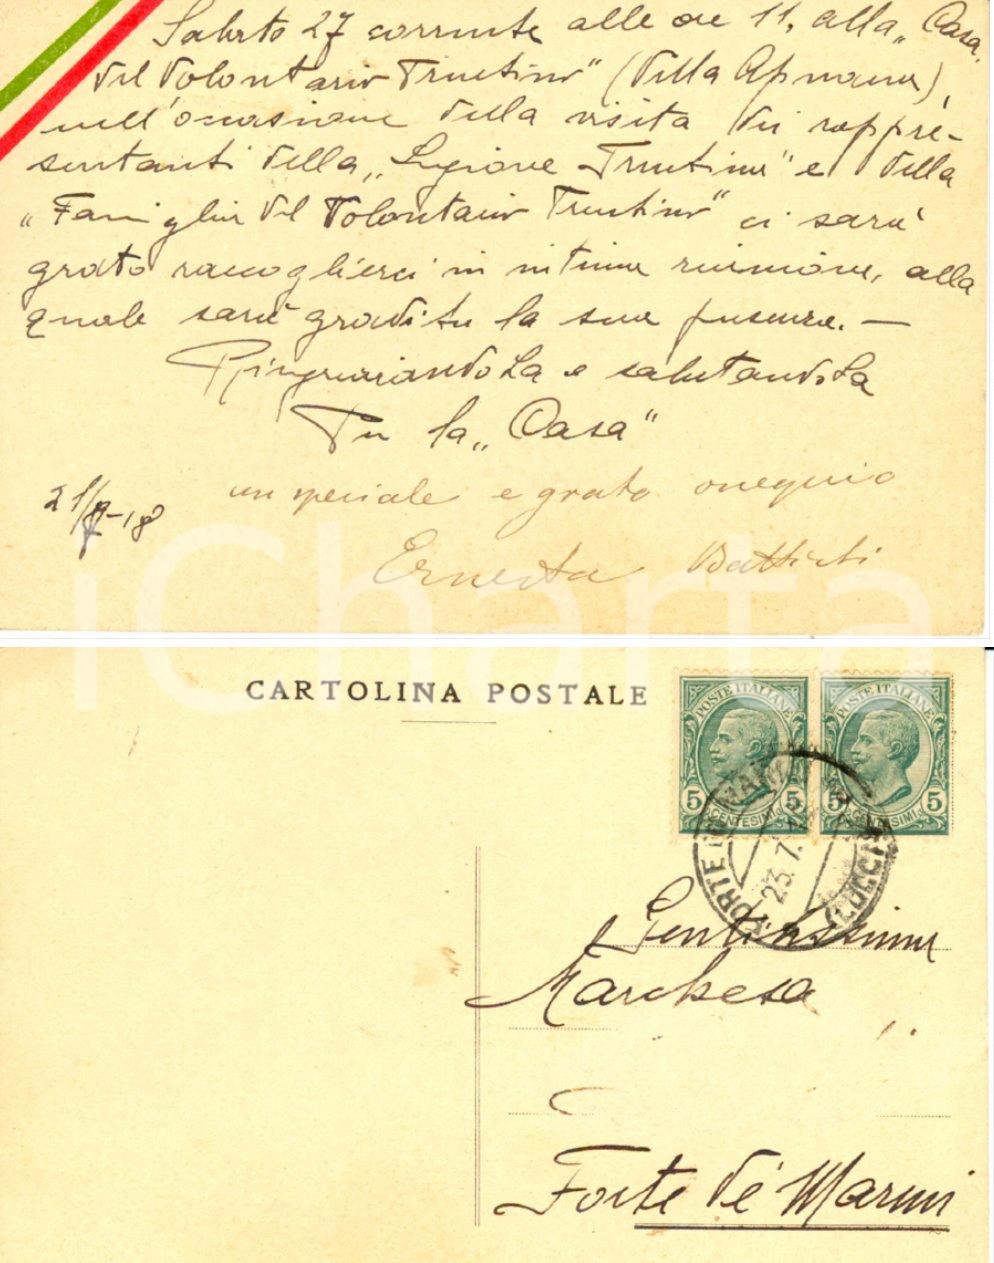 Sabato 27 corrente alle ore 11, alla „Casa
del Volontario Trentino" (Villa Apuana),
nell'occasione della visita dei rappre-
sentanti della „Legione Trentina" e della
„Famiglia del Volontario Trentino" ci sarà
grato raccoglierci in intima riunione, alla
quale sarà gradita la sua presenza. —
RingraziandoLa e salutandoLa
Per la „Casa"
un speciale e grato ossequio
21/7-18
Ernesta Battisti
iCharta
CARTOLINA POSTALE
POSTE ITALIANE POSTE ITALIANE
5 CENTESIMI 5 5 CENTESIMI 5
FORTE DEI MARMI
23.7.
LUCCA
Gentilissima
Marchesa
Forte dei Marmi